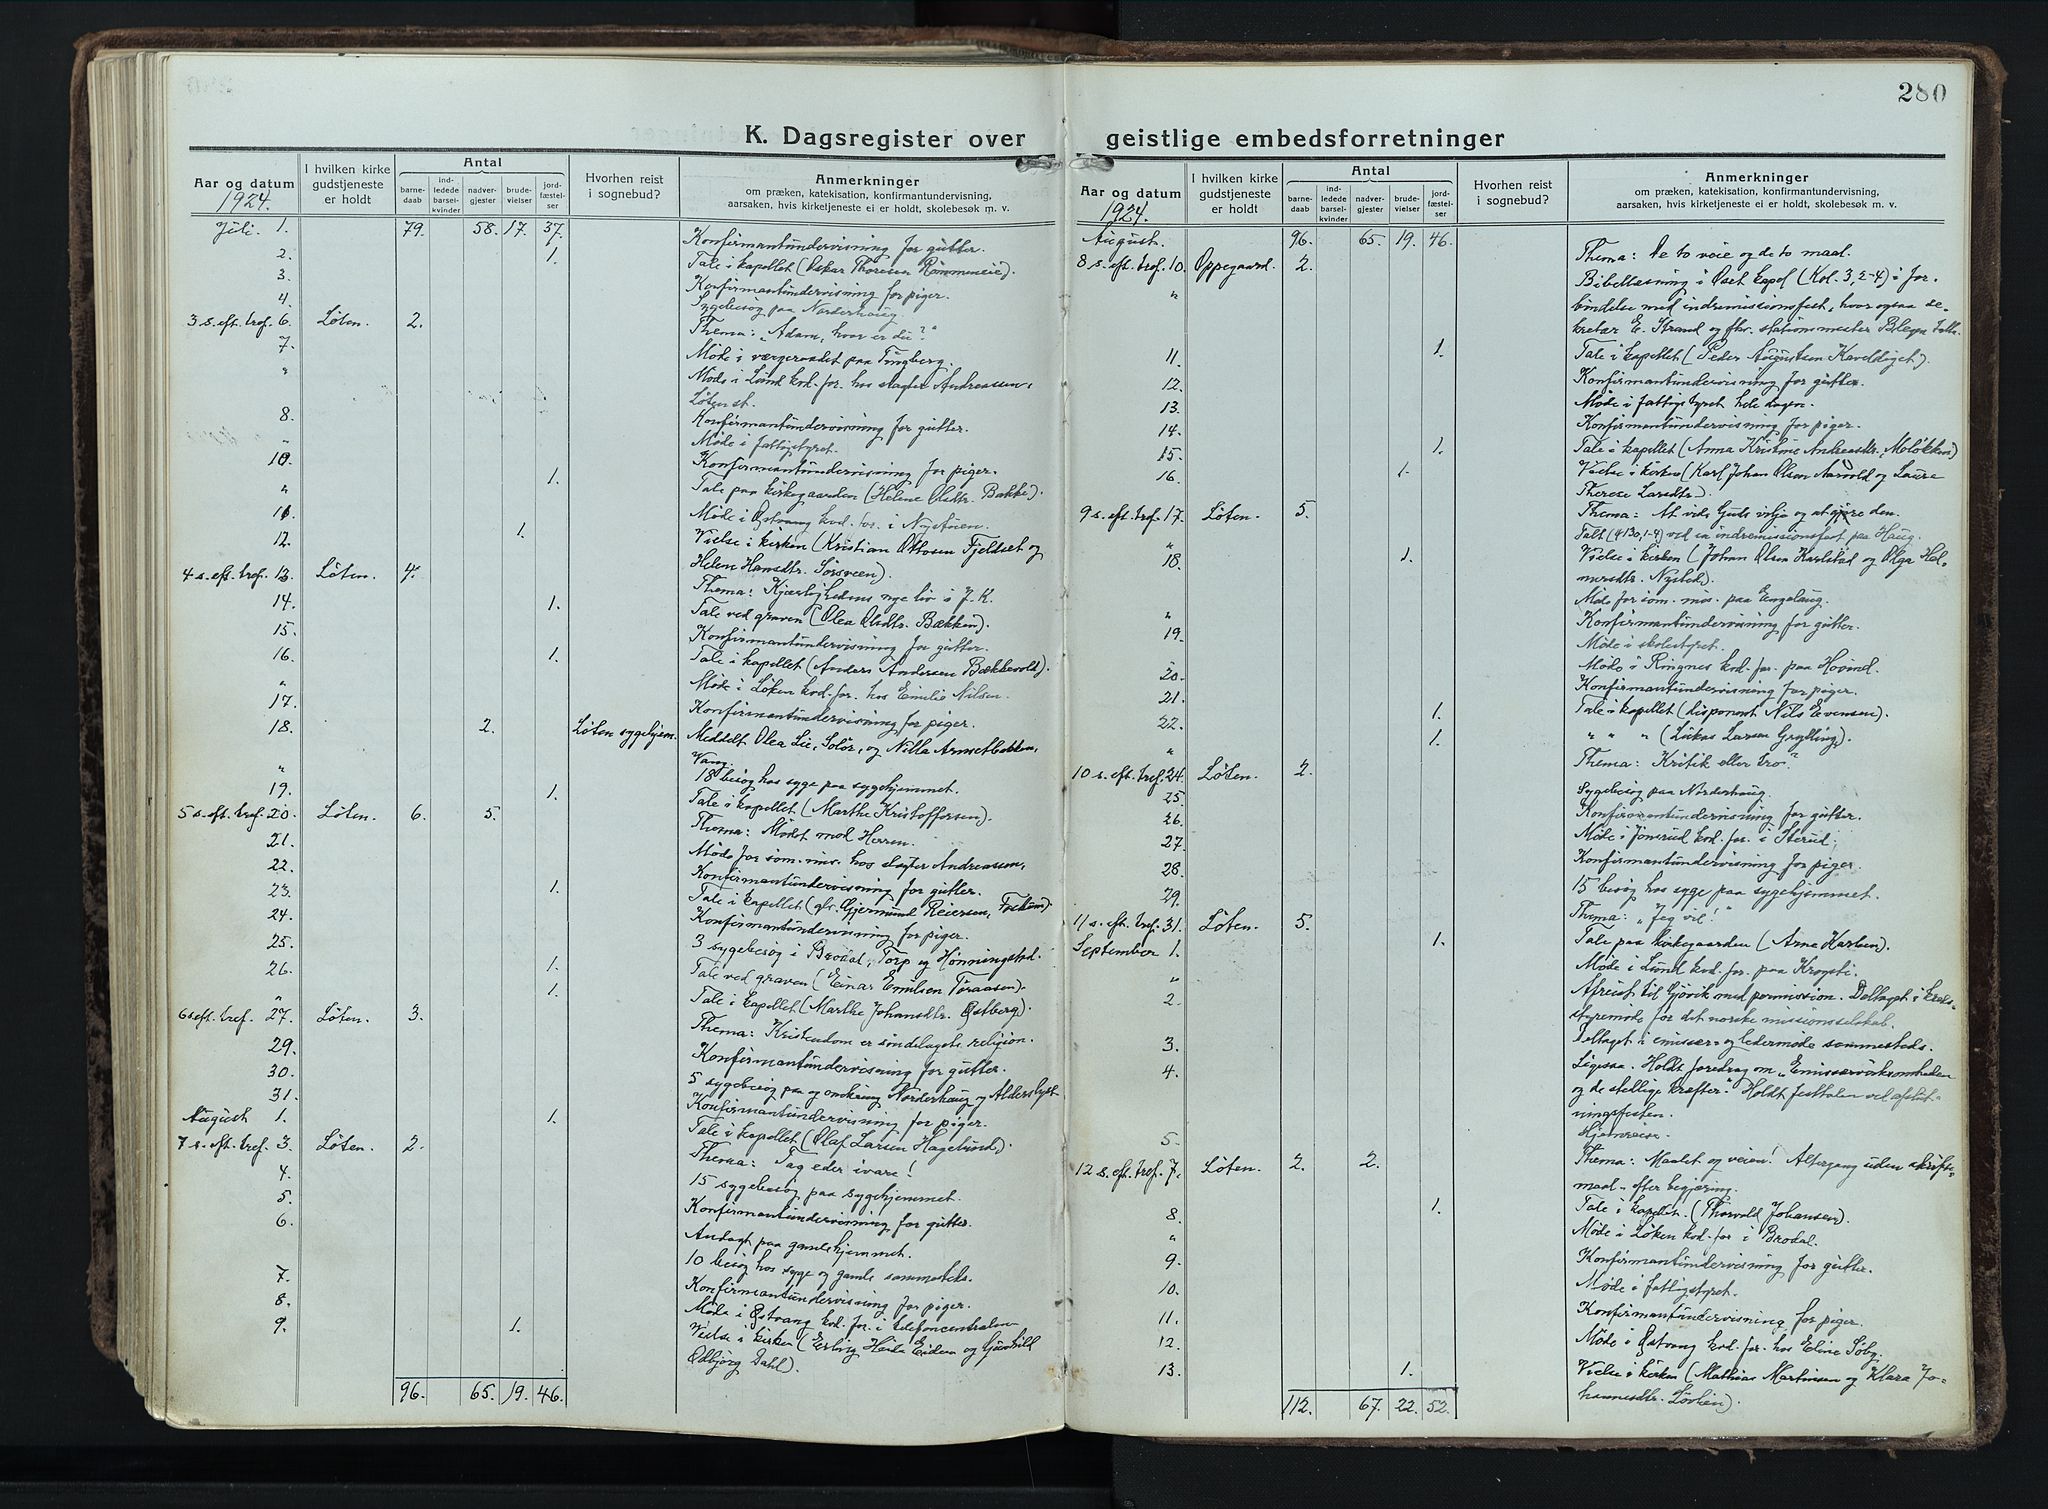 280
K. Dagsregister over geistlige embedsforretninger
Aar og datum
I hvilken kirke gudstjeneste er holdt
Antal
barnedaab
indledede barselkvinder
nadvergjester
brudevielser
jordfæstelser
Hvorhen reist i sognebud?
Anmerkninger
om præken, katekisation, konfirmantundervisning, aarsaken, hvis kirketjeneste ei er holdt, skolebesøk m. v.
1924.
Juli. 1. 79. 58. 17. 37. Konfirmantundervisning for gutter.
2. 1. Tale i kapellet (Oskar Thoresen Rømmeneie).
3. Konfirmantundervisning for piger.
4. Sygebesøg paa Norderhaug.
3 s. eft. tref. 6. Løten. 2. Thema: "Adam, hvor er du?"
7. Møde i værgeraadet paa Tingberg.
" Møde i Lund kvd. for. hos slagter Andreassen,
Løten st.
8. Konfirmantundervisning for gutter.
" Møde i fattigstyret.
10. Konfirmantundervisning for piger.
" 1. Tale paa kirkegaarden (Helene Olsdtr. Bakke).
11. Møde i Østvang kvd. for. i Nystuen.
12. 1. Vielse i kirken (Kristian Ottosen Fjeldset og
Helene Hansdtr. Sørsveen).
4 s. eft. tref. 13. Løten. 4. Thema: Kjærlighedens nye liv i J. K.
14. 1. Tale ved graven (Olea Olsdtr. Bækken).
15. Konfirmantundervisning for gutter.
16. 1. Tale i kapellet (Anders Andersen Bækkevold).
" Møde i Løken kvd. for. hos Emilie Nilsen.
17. Konfirmantundervisning for piger.
18. 2. Løten sygehjem. Meddelt Olea Lie, Solør, og Nilla Armetbakken,
Vang.
" 18 besøg hos syge paa sygehjemmet.
19. 1. Tale i kapellet (Marthe Kristoffersen).
5 s. eft. tref. 20. Løten. 6. 5. Thema: Mødet med Herren.
21. Møde for som. mis. hos slagter Andreassen,
22. Konfirmantundervisning for gutter.
23. 1. Tale i kapellet (Gjermund Reiersen,
24. Konfirmantundervisning for piger.
25. 3 sygebesøg i Brodal, Torp og Hønningstad.
26. 1. Tale ved graven (Einar Emilsen Toraasen).
" 1. Tale i kapellet (Marthe Johansdtr. Østberg).
6 s. eft. tref. 27. Løten. 3. Thema: Kristendom er sindelagets religion.
29. Konfirmantundervisning for gutter.
30. 5 sygebesøg paa og omkring Norderhaug og Alderslyst
31. Konfirmantundervisning for piger.
August 1. 1. Tale i kapellet (Olaf Larsen Hagelund).
7 s. eft. tref. 3. Løten. 2. Thema: Tag eder ivare!
4. 15 sygebesøg paa sygehjemmet.
5. Konfirmantundervisning for gutter.
6. Andagt paa gamlehjemmet.
10 besøg hos syge og gamle sammesteds.
7. Konfirmantundervisning for piger.
8. Møde i Østvang kvd. for. i telefoncentralen
9. 1. Vielse i kirken (Erling Eiden og Gunhild
Odbjørg Dahl).
96. 65. 19. 46.
Aar og datum
I hvilken kirke gudstjeneste er holdt
Antal
barnedaab
indledede barselkvinder
nadvergjester
brudevielser
jordfæstelser
Hvorhen reist i sognebud?
Anmerkninger
om præken, katekisation, konfirmantundervisning, aarsaken, hvis kirketjeneste ei er holdt, skolebesøk m. v.
1924.
August. 96. 65. 19. 46.
8 s. eft. tref. 10. Oppegaard. 2. Thema: De to veie og de to maal.
" Bibellæsning i Oset kapel (Kol. 3, 2-4) i for-
bindelse med indremissionsfest, hvor ogsaa se-
kretær E. Strand og fhv. stationsmester talte.
11. 1. Tale i kapellet (Peder Augustsen Kaveldiget).
12. Konfirmantundervisning for gutter.
13. Møde i fattigstyret hele dagen.
14. Konfirmantundervisning for piger.
15. 1. Tale i kapellet (Anna Kristine Andreasdtr. Meløkken)
16. 1. Vielse i kirken (Karl Johan Olsen Aarvold og Laura
Therese Larsdtr.).
9 s. eft. tref. 17. Løten. 5. Thema: At vide Guds vilje og at gjøre den.
" Talt (ψ 130, 1-4) ved en indremissionsfest paa Haug.
18. 1. Vielse i kirken (Johan Olsen Karlstad og Olga Hel-
mersdtr. Nysted).
" Møde for som. mis. paa Engelaug.
19. Konfirmantundervisning for gutter.
" Møde i skolestyret.
20. Møde i Ringnes kvd. for. paa Hovind.
21. Konfirmantundervisning for piger.
22. 1. Tale i kapellet (disponent Nils Evensen).
" 1. " " " (Lukas Larsen Grylling).
10 s. eft. tref. 24. Løten. 2. Thema: Kritik eller tro?
25. Sygebesøg paa Norderhaug.
26. Konfirmantundervisning for gutter.
27. Møde i Jønsrud kvd. for. i Sterud.
28. Konfirmantundervisning for piger.
29. 15 besøg hos syge paa sygehjemmet.
11 s. eft. tref. 31. Løten. 5. Thema: "Jeg vil!"
September 1. 1. Tale paa kirkegaarden (Arne Karlsen).
" Møde i Lund kvd. for. paa Krogsti.
2. Afreist til Gjøvik med permission. Deltaget i kreds-
styremøde for det norske missionsselskab.
3. Deltaget i emissær- og ledermøde sammesteds.
4. Ligesaa. Holdt foredrag om "Emissærvirksomheden
og de stedlige kræfter." Holdt festtalen ved afslut-
ningsfesten.
5. Hjemreise.
12 s. eft. tref. 7. Løten. 2. 2. Thema: Maalet og veien! Altergang uden skrifte-
maal efter begjæring.
8. 1. Tale i kapellet. (Thorvald Johansen).
" Møde i Løken kvd. for. i Brodal.
9. Konfirmantundervisning for gutter.
10. Møde i fattigstyret.
11. Konfirmantundervisning for piger.
12. Møde i Østvang kvd. for. hos Eline Søby.
13. 1. Vielse i kirken (Mathias Martinsen og Klara Jo-
hannesdtr. Løvlien).
112. 67. 22. 52.